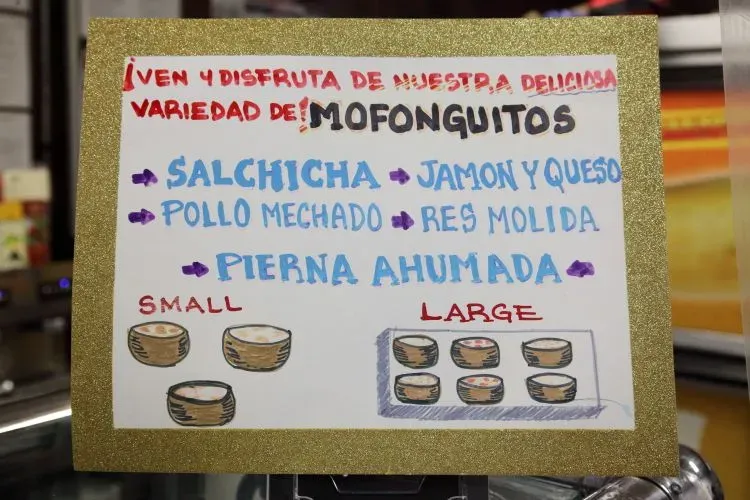 ¡VEN Y DISFRUTA DE NUESTRA DELICIOSA
VARIEDAD DE! MOFONGUITOS
SALCHICHA JAMON Y QUESO
POLLO MECHADO RES MOLIDA
PIERNA AHUMADA
SMALL LARGE